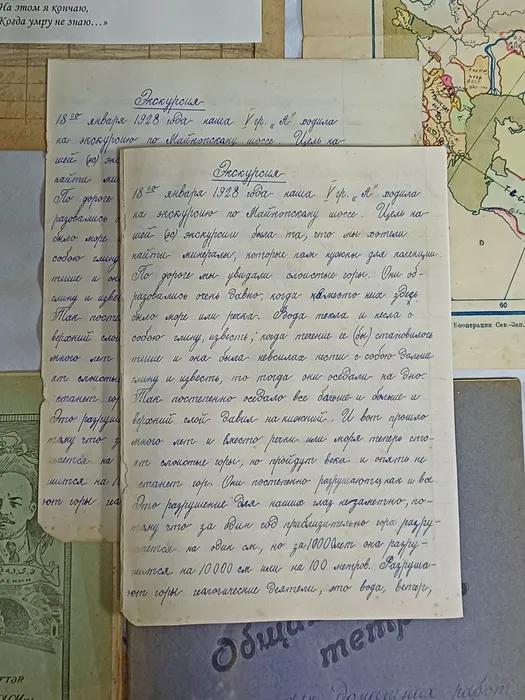 На этом я кончаю,
Когда умру не знаю...»
Экскурсия
18го января 1928 года наша V гр. „А" ходила
на экскурсию по Майкопскому шоссе. Цель на-
шей (эо)
найти
По дороге
разовались
было море
собою глину
тише и
глину и извес
Так посте
верхний сло
много лет
ят слоистые
станет го
Это разруш
тому что з
шается на
шится на 1
ют горы геа
Экскурсия
18го января 1928 года наша V гр. „А" ходила
на экскурсию по Майкопскому шоссе. Цель на-
шей (эо) экскурсии была та, что мы хотели
найти минералы, которые нам нужны для калекции.
По дороге мы увидали слоистые горы. Они об-
разовались очень давно, когда вместо них здесь
было море или речка. Вода текла и несла с
собою глину, известь, когда течение ее (бы) становилось
тише и она была невсилах нести с собою дальше
глину и известь, то тогда они оседали на дно.
Так постепенно оседало все больше и больше и
верхний слой давил на нижний. И вот прошло
много лет и вместо речки или моря теперь сто-
ят слоистые горы, но пройдут века и опять не
станет гор. Они постепенно разрушаются как и все.
Это разрушение для наших глаз незаметно, по-
тому что за один год приблизительно гора разру-
шается на один см., но за 10000 лет она разру-
шится на 10000 см или на 100 метров. Разруша-
ют горы геагогические деятели, это вода, ветер,
60
Кооперации Сев.-Зап.
ЛЕНИН
Общая
тетр
для домашних работ